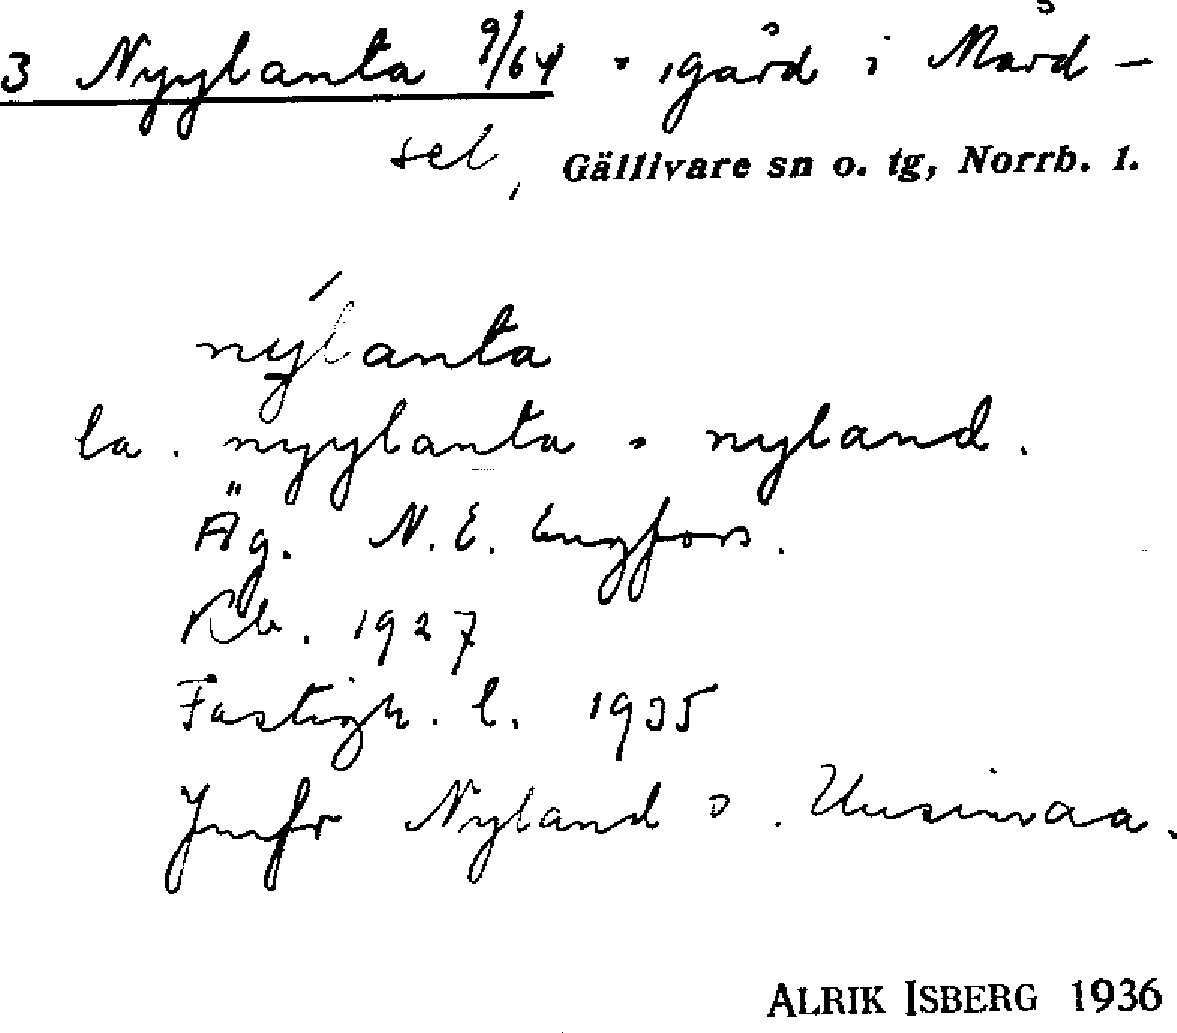 3 Nyylanta 9/64 · gård i Mård-
sel, Gällivare sn o. tg, Norrb. l.
nýlanta
la. nyylanta · nyland.
Äg. N. E. Engfors.
Kb. 1927
Fastigh. l. 1935
Jmfr Nyland o. Uusimaa.
ALRIK ISBERG 1936